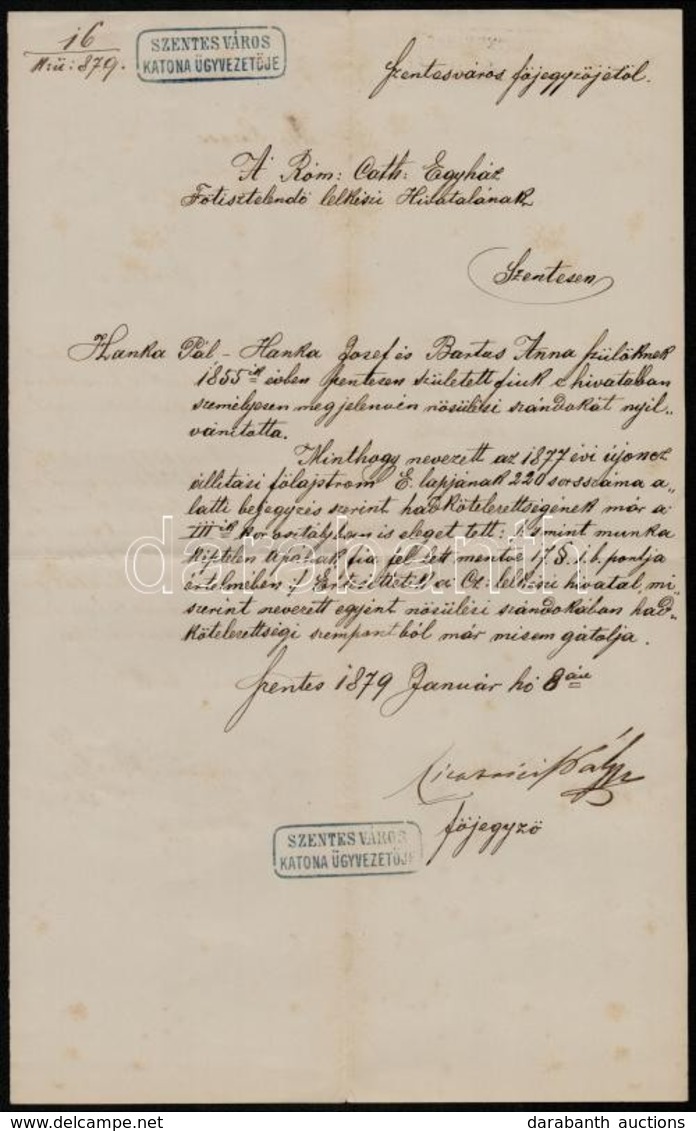 16
Kzü: 879.
SZENTES VÁROS
KATONA ÜGYVEZETŐJE
Szentesváros főjegyzőjétől.
A Róm: Cath: Egyház
Főtisztelendő lelkészi Hivatalának
Szentesen
Hanka Pál - Hanka Jozef és Bartus Anna szülőknek
1855ik évben Szentesen született fiuk e hivatalban
személyesen megjelenvén nősülési szándokát nyil-
vánitotta.
Minthogy nevezett az 1877 évi újoncz
állitási fölajstrom E. lapjának 220 sorsszáma a-
latti bejegyzés szerint hadkötelezettségének már a
III ik korosztályban is eleget tett: mint munka
képtelen apának fia fel lett mentve 17 §. 1. b. pontja
értelmében :/ Értesittetik a Cz: lelkészi hivatal, mi-
szerint nevezett egyént nősülési szándokában had-
kötelezettségi szempontból már misem gátolja.
Szentes 1879 Január hó 8 án
főjegyző
SZENTES VÁROS
KATONA ÜGYVEZETŐJE
darabanth
darabanth auctions